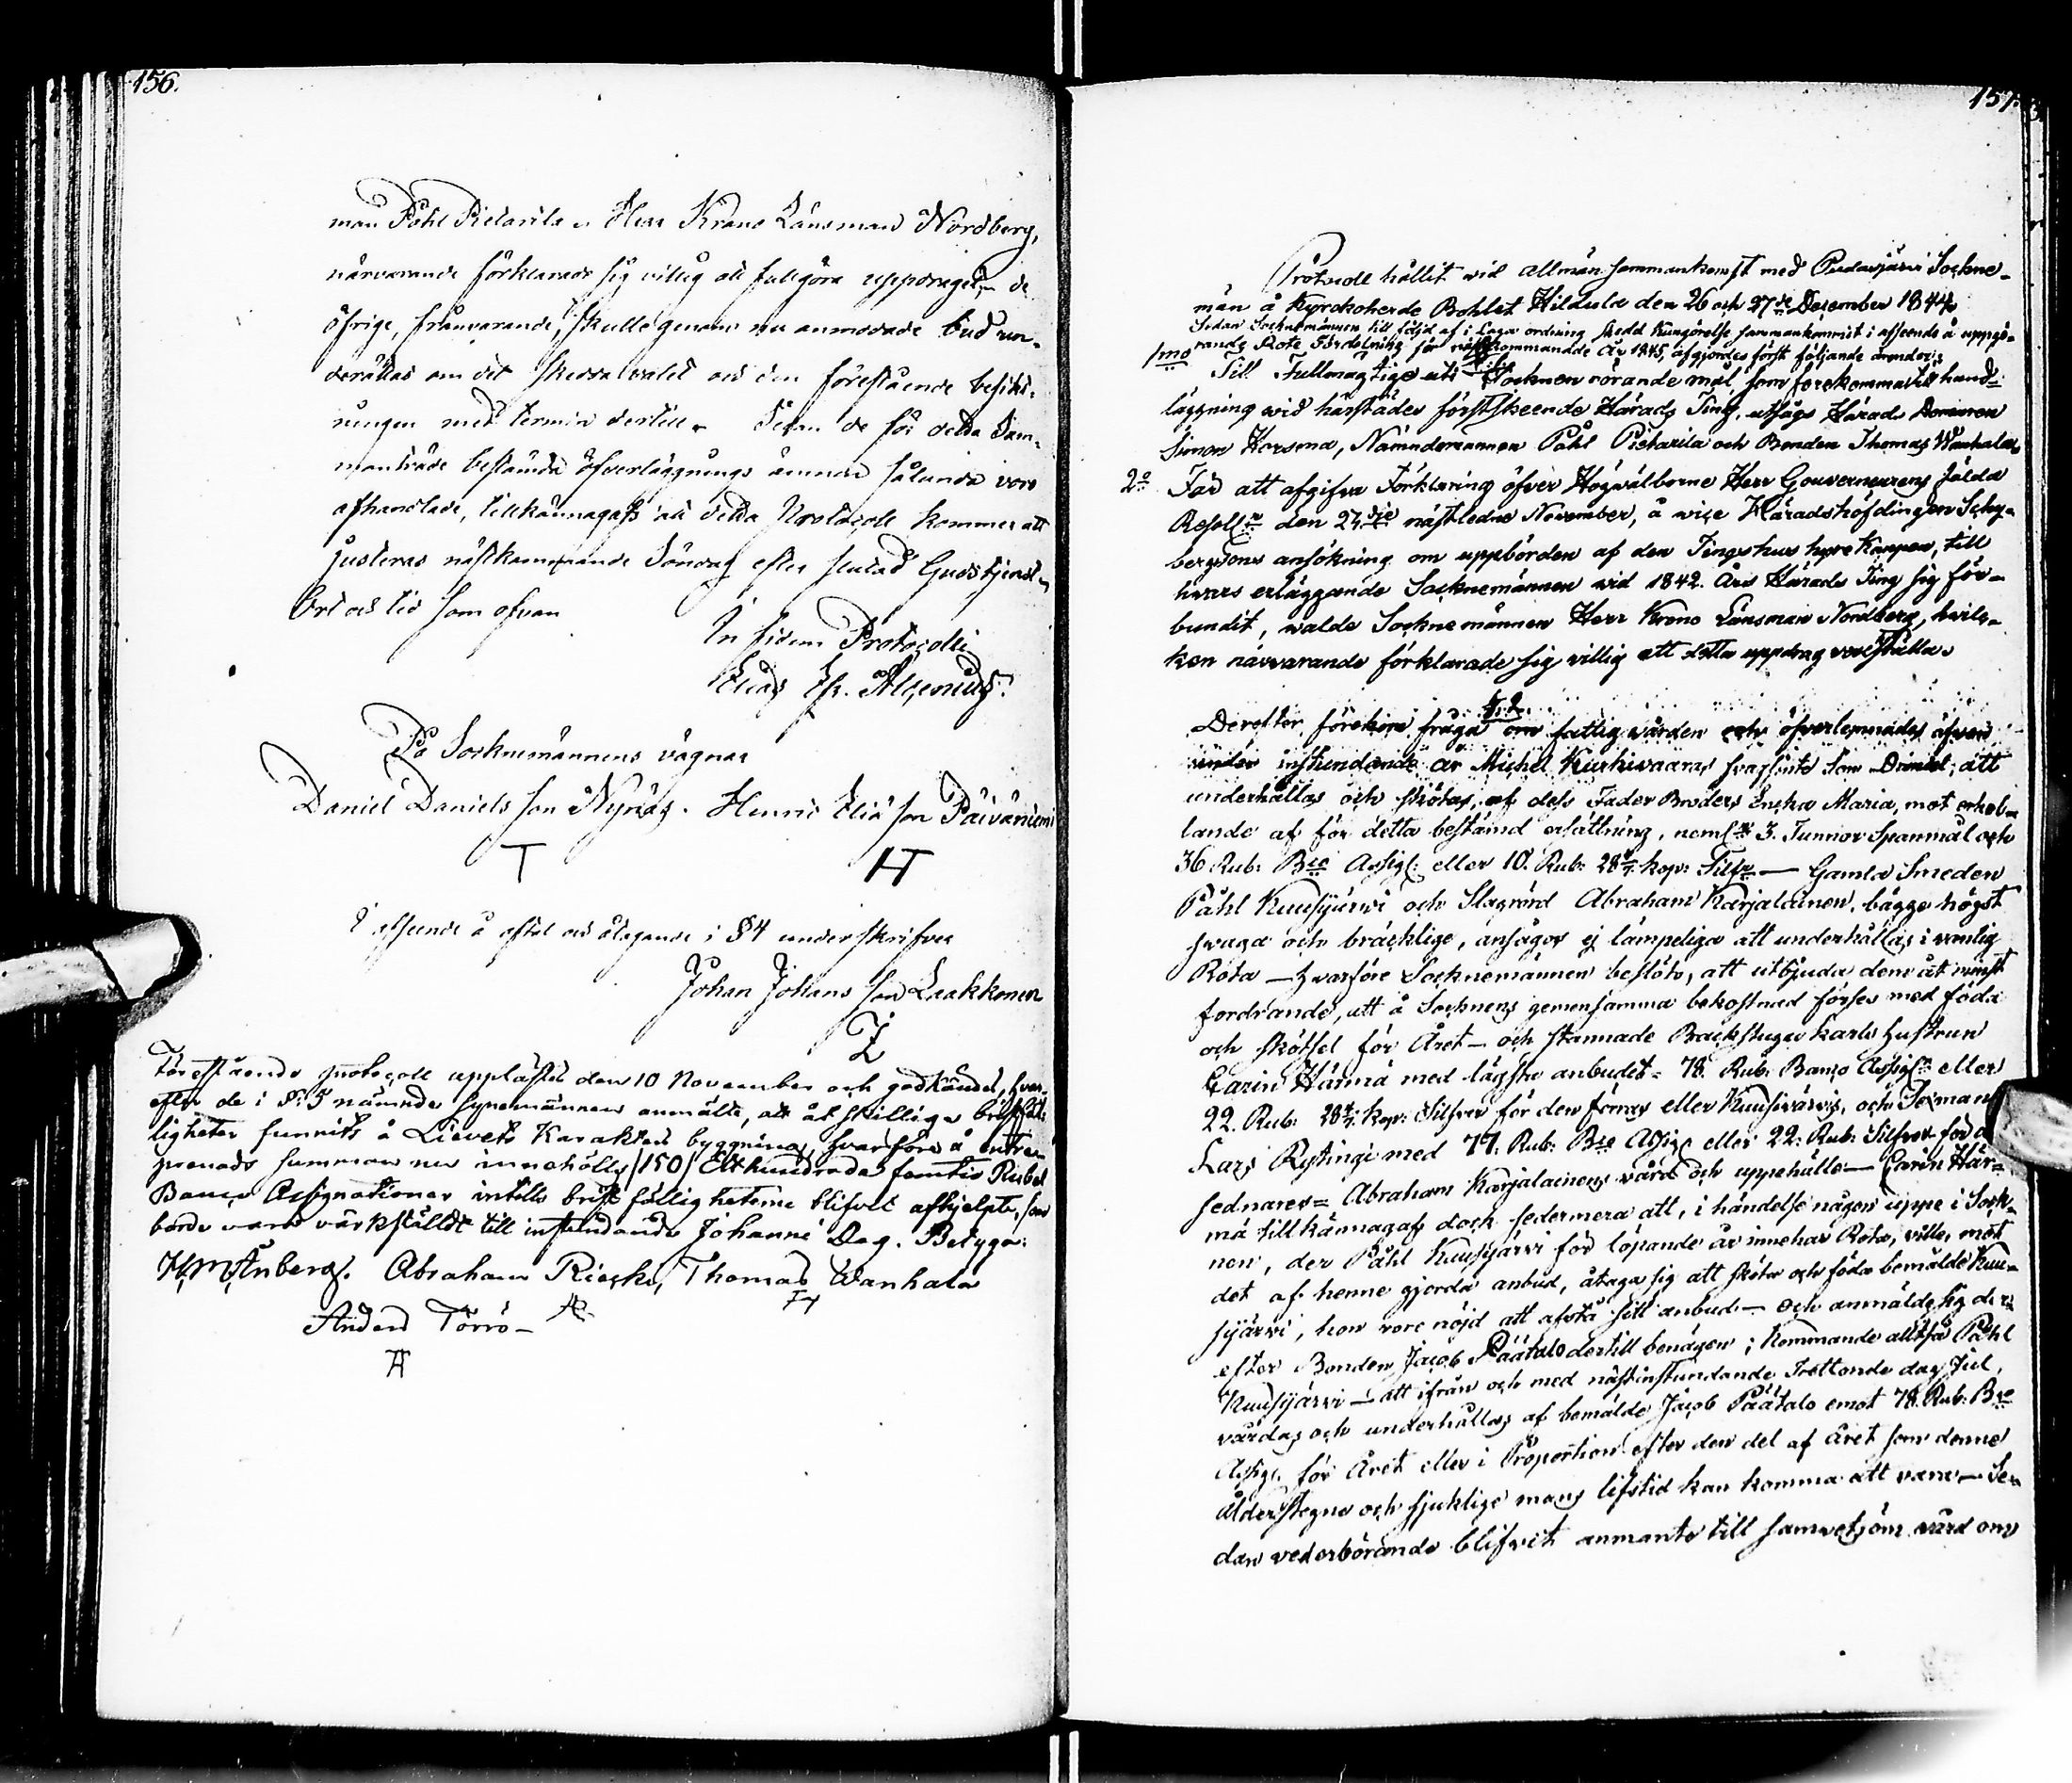 156.
man Påhl Pietarila, Herr Krono Länsman Nordberg,
närvarande förklarade sig villig att fullgöra uppdraget, de
öfrige, frånvarande, skulle genom nu anmodade bud un-
derättas om det skedda valet och den förestående besikt-
ningen med termin dertill. Sedan de för detta Sam-
manträde bestämda öfverläggnings ämnen sålunda voro
afhandlade, tillkännagafs att detta Protocoll kommer att
justeras nästkommande Söndag efter slutad Gudstjenst.
Ort och tid som ofvan
In fidem Protocolli
Elias Alcenius.
På Socknemännens vägnar
Daniel Daniels son Nyrås. Henric Eliæ son Päiväniemi
T HT
I afseende å aftal och åtagande i §4 underskrifver
Johan Johans son Laakkonen
Förestående protocoll upplästes den 10 November och godkändes, hvar-
efter de i §: 5 nämnda synemännen anmälte, att åtskillige bristfäl-
ligheter funnits å Lievets Karakters byggning, hvarföre å entre-
prenads summan nu innehölls /150/ Etthundrade femtio Rubel
Banco Assignationer intills bristfälligheterne blifvit afhjelpte, som
borde vara värkstäldt till instundande Johanni Dag. Betyga:
H. M. Änberg. Abraham Riecki, Thomas Wanhala
Anders Törrö
157.
Protocoll hållit wid allmän sammankomst med Pudasjärvi Sockne-
män å Kyrckoherde Bohlet Hildula den 26 och 27de December 1844.
Sedan Socknemännen till följd af i Laga ordning skedd Kungörelse sammankommit i afseende å uppgö-
rande Rote Fördelning för nästkommande År 1845, afgjordes först följande ärender:
1mo Till Fullmägtige uti Socknen rörande mål, som förekomma till hand-
läggning wid härstädes förstskeende Härads Ting, utsågs Härads Domaren
Simon Horsma, Nämndemannen Påhl Pietarila och Bonden Thomas Wanhala.
2o För att afgifva Förklaring öfver Högwälborne Herr Gouverneurens fälda
Resol: den 27de nästledne November, å vice Häradshöfdingen Schy-
bergsons ansökning om uppbörden af den Tingshus hyre Kappen, till
hvars erläggande Socknemännen wid 1842 Års Härads Ting sig för-
bundit, walde Socknemännen Herr Krono Länsman Nordberg, hvil-
ken närvarande förklarade sig villig att detta uppdrag verkställa.
§ 2.
Derefter förekom fråga om fattigvården och öfverlemnades äfven
under instundande år Michel Kurkivaaras svagsinte Son Daniel, att
underhållas och skötas, af dess Fader Broders Encka Maria, mot erhål-
lande af för detta bestämd ersättning, neml: 3. Tunnor Spannmål och
36 Rub: Bco Assig: eller 10. Rub: 28 4/7 kop: Silfr — Gamla Smeden
Påhl Kuusijärvi och Slagrörd Abraham Karjalainen, bägge högst
svaga och bräcklige, ansågos ej lämpeliga att underhållas i vanlig
Rota — hvarföre Socknemännen beslöto, att utbjuda dem åt minst
fordrande, att å Socknens gemensamma bekostnad förses med föda
och skötsel för Året — och stannade Backstugu karls hustrun
Carin Härmä med lägsta anbudet = 78. Rub: Banco Assig: eller
22. Rub: 28 4/7 kop: Silfver för den förras eller Kuusijärvis, och
Lars Rytingi med 77. Rub: Bco Assig: eller 22: Rub: Silfver för d
sednares = Abraham Karjalainens vård och uppehälle — Carin Här-
mä tillkännagaf dock sedermera att, i händelse någon uppe i Sock-
nen, der Påhl Kuusijärvi för löpande år innehar Rota, ville, mot
det af henne gjorda anbud, åtaga sig att sköta och föda bemälde Kuu-
sijärvi, hon vore nöjd att afstå sitt anbud — och anmälde sig der-
efter Bonden Jacob Päätalo dertill benägen; Kommande alltså Påhl
Kuusijärvi — att ifrån och med nästinstundande Trettonde dag Jul,
vårdas och underhållas af bemälde Jacob Päätalo emot 78. Rub: Bco
Assig: för Året eller i Proportion efter den del af Året som denne
ålderstegne och sjuklige mans lifstid kan komma att vara — Se-
dan vederbörande blifvit anmante till samvetsöm vård om